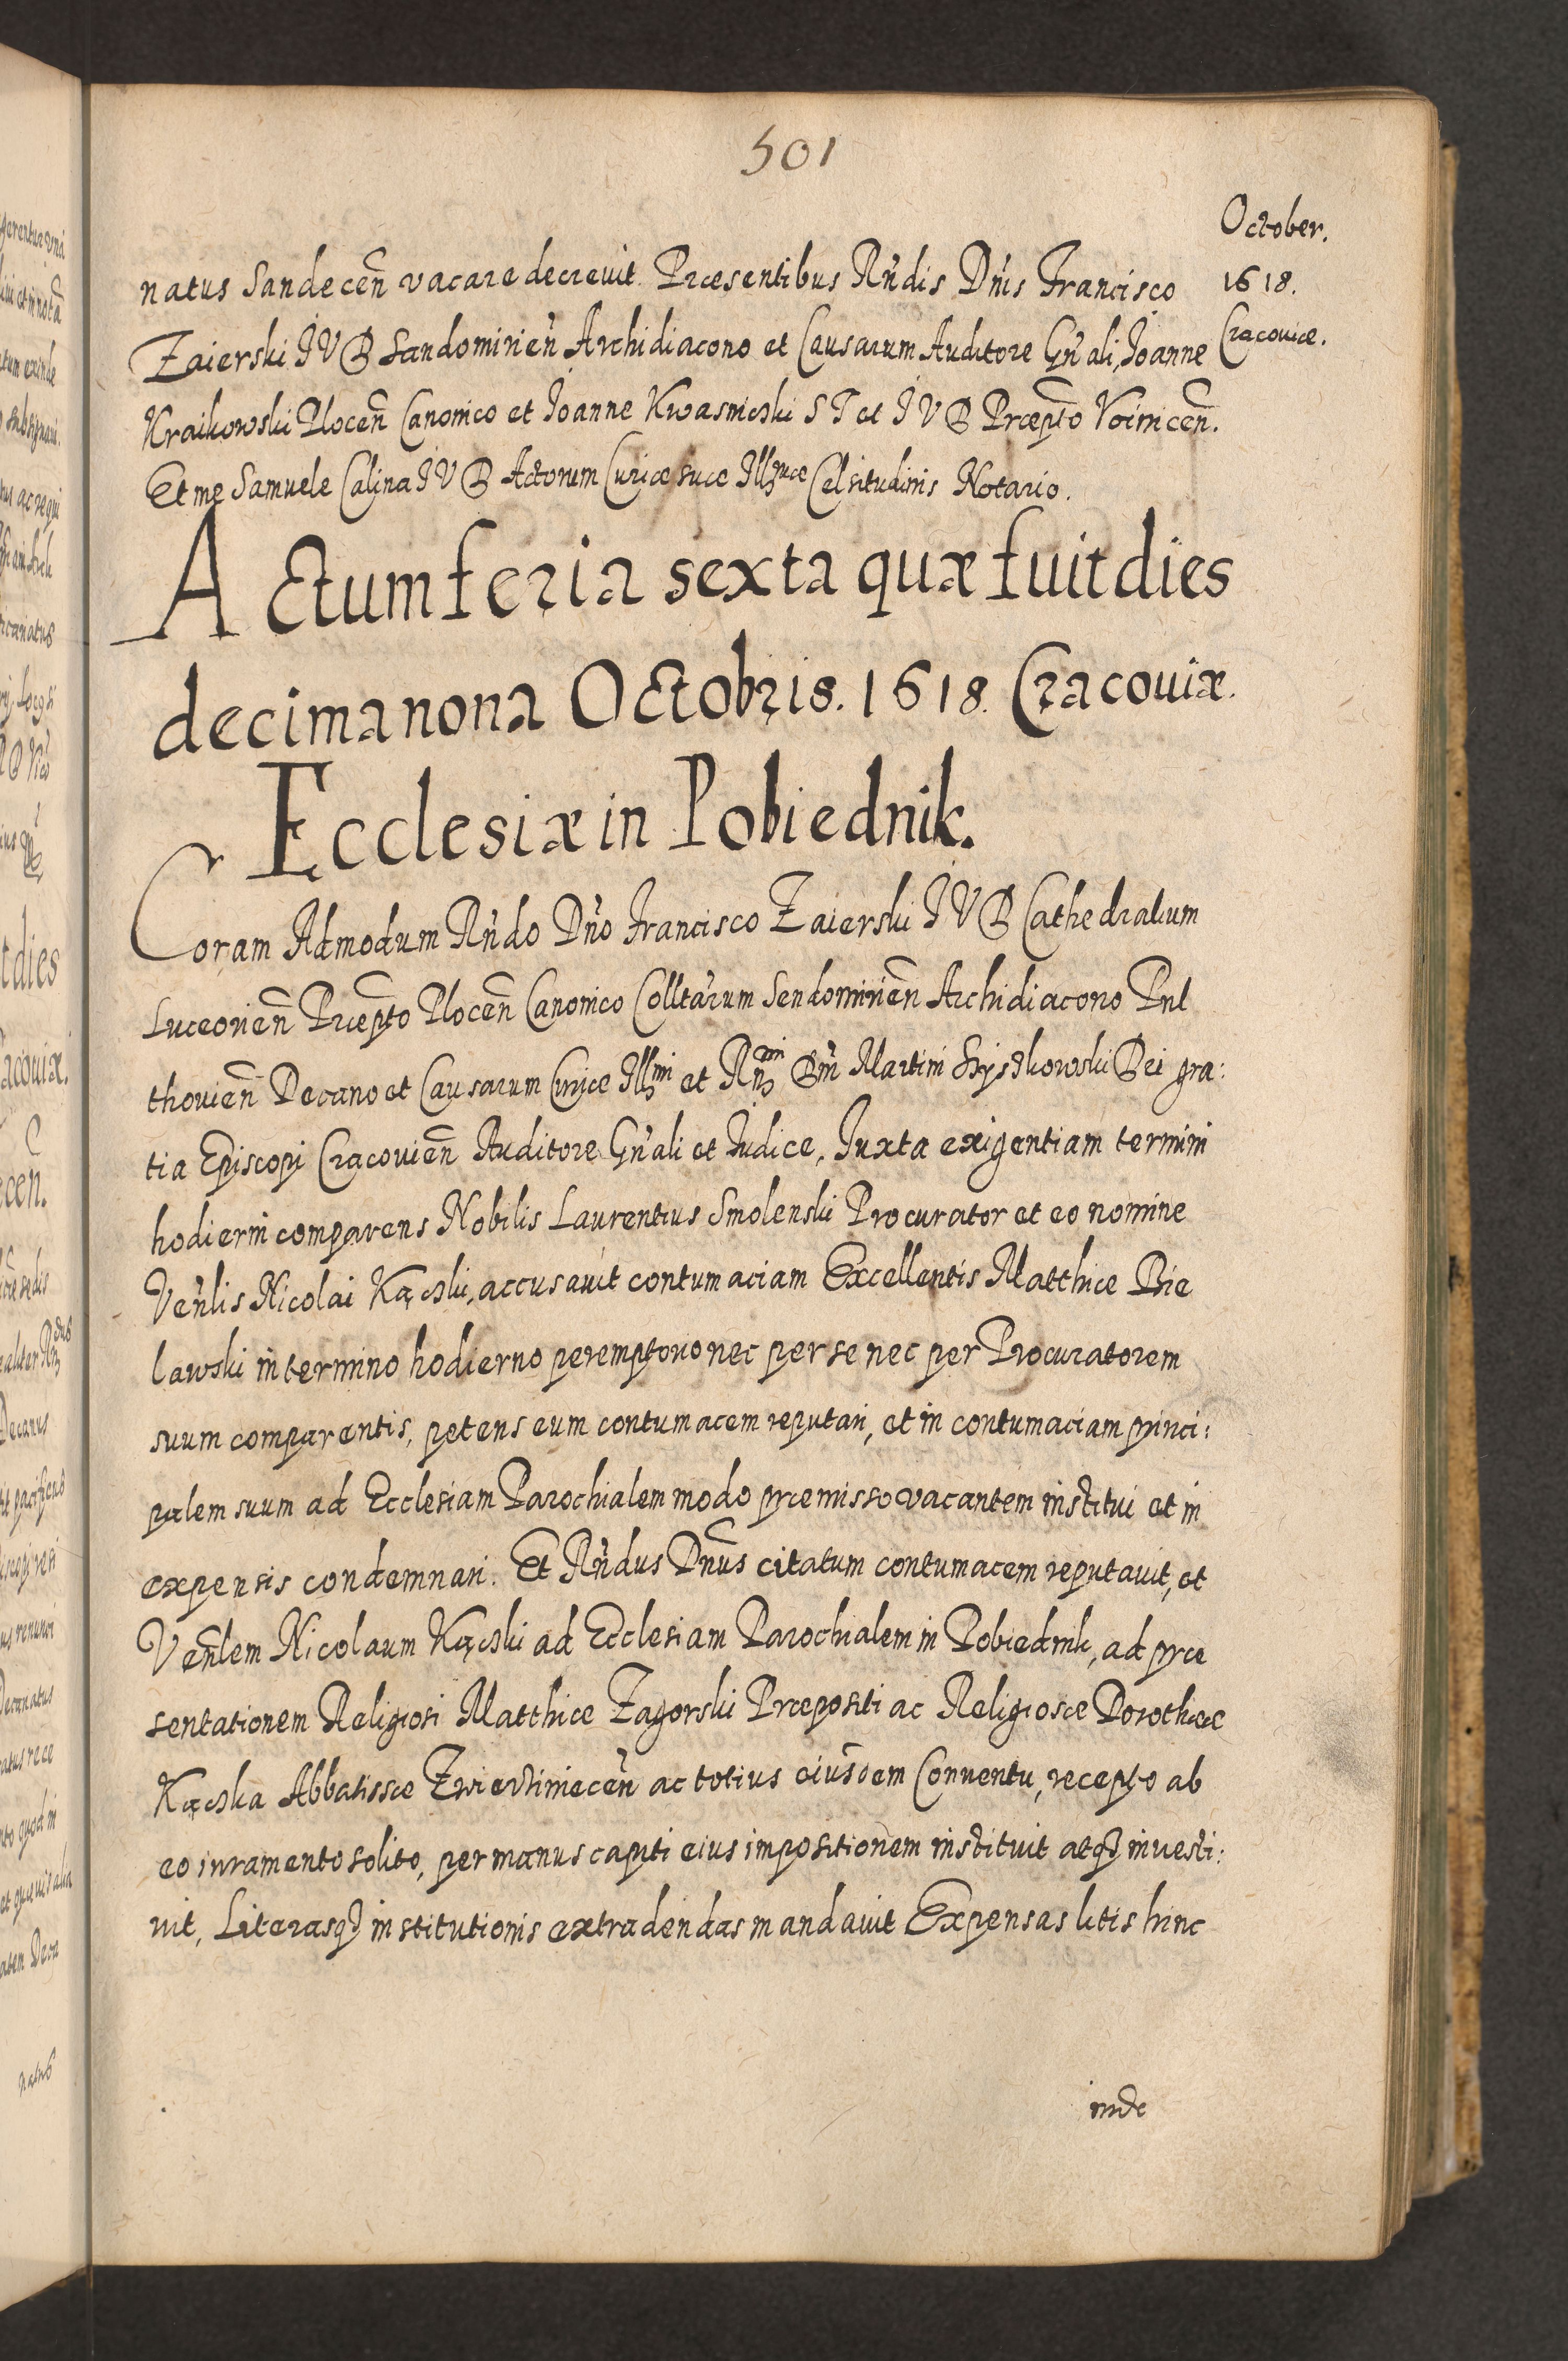 501
October.
1618.
Cracoviæ.
natus Sandecen̄ vacare decrevit. Præsentibus Rn̄dis Dn̄is Francisco
Zaierski I V D Sandomirien̄ Archidiacono et Causarum Auditore Gn̄ali, Joanne
Kraikowski Plocen̄ Canonico et Joanne Kwasnicski S T et I V D Præp̄to Voinicen̄.
Et me Samuele Calina I V D Actorum Curiæ suæ Illmæ Celsitudinis Notario.
Actum feria sexta quæ fuit dies
decima nona Octobris. 1618. Cracouiæ.
Ecclesiæ in Pobiednik.
Coram Admodum Rn̄do Dn̄o Francisco Zaierski I V D Cathedralium
Luceorien̄ Præp̄to Plocen̄ Canonico Colltārum Sendomirien̄ Archidiacono Pul
thovien̄ Decano et Causarum Curiæ Illmi et Rn̄dmi Dn̄i Martini Szyszkowski Dei gra:
tia Episcopi Cracouien̄ Auditore Gn̄ali et Iudice, Iuxta exigentiam termini
hodierni comparens Nobilis Laurentius Smolenski Procurator et eo nomine
Ven̄lis Nicolai Kącski, accusauit contumaciam Excellentis Matthiæ Bie
lawski in termino hodierno peremptorio nec per se nec per Procuratorem
suum comparentis, petens eum contumacem reputari, et in contumaciam princi:
palem suum ad Ecclesiam Parochialem modo præmisso vacantem institui et in
expensis condemnari. Et Rn̄dus Dn̄us citatum contumacem reputauit, et
Ven̄lem Nicolaum Kącski ad Ecclesiam Parochialem in Pobiednik, ad præ
sentationem Religiosi Matthiæ Zagorski Præpositi ac Religiosæ Dorotheæ
Kącska Abbatissæ Zwierziniecen̄ ac totius eiusdem Conuentu, recepto ab
eo iuramento solito, per manus capiti eius impositionem instituit atq3 inuesti:
uit, Literasq3 institutionis extradendas mandauit Expensas litis hinc
inde